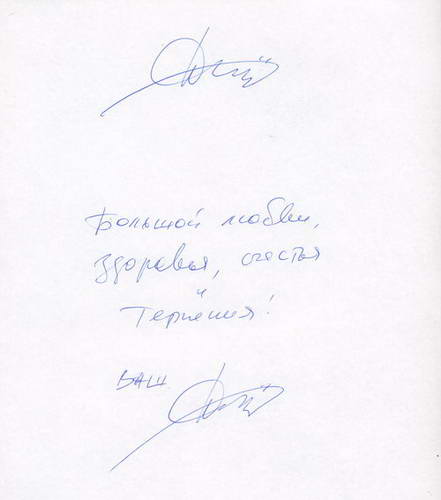 Большой любви,
здоровья, счастья
и
терпения!
Ваш